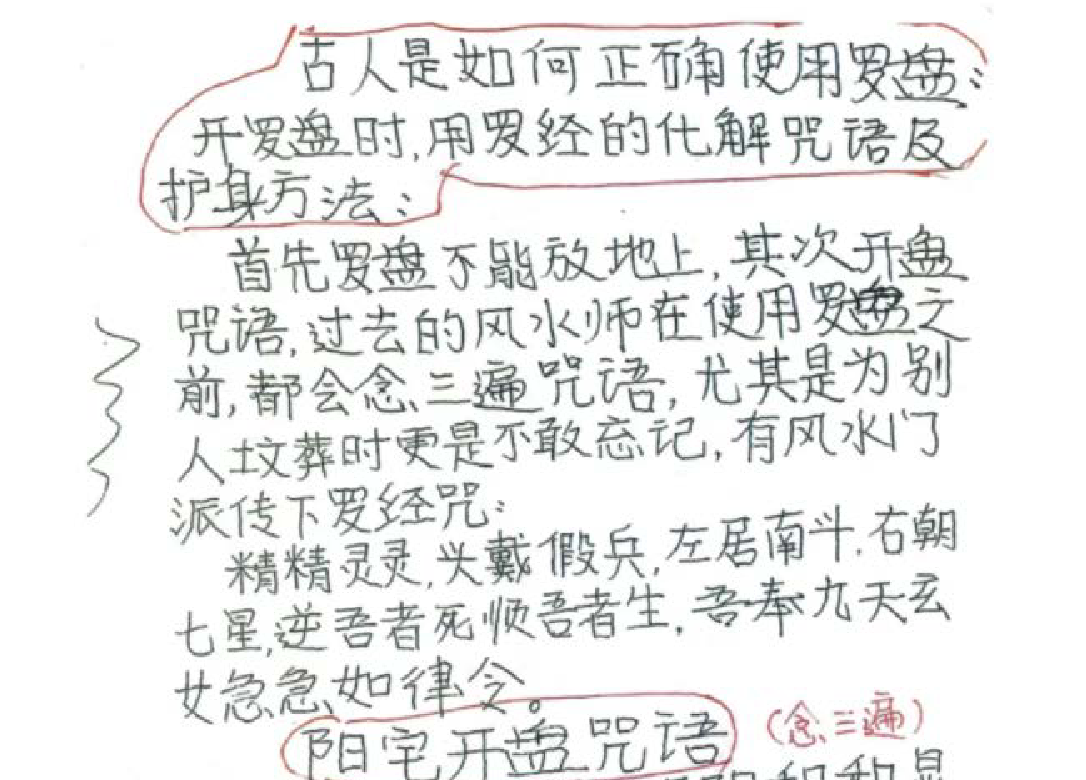 古人是如何正确使用罗盘：
开罗盘时，用罗经的化解咒语及
护身方法：
首先罗盘不能放地上，其次开盘
咒语，过去的风水师在使用罗盘之
前，都会念三遍咒语，尤其是为别
人坟葬时更是不敢忘记，有风水门
派传下罗经咒：
精精灵灵，头戴假兵，左居南斗，右朝
七星，逆吾者死顺吾者生，吾奉九天玄
女急急如律令。
阳宅开盘咒语（念三遍）